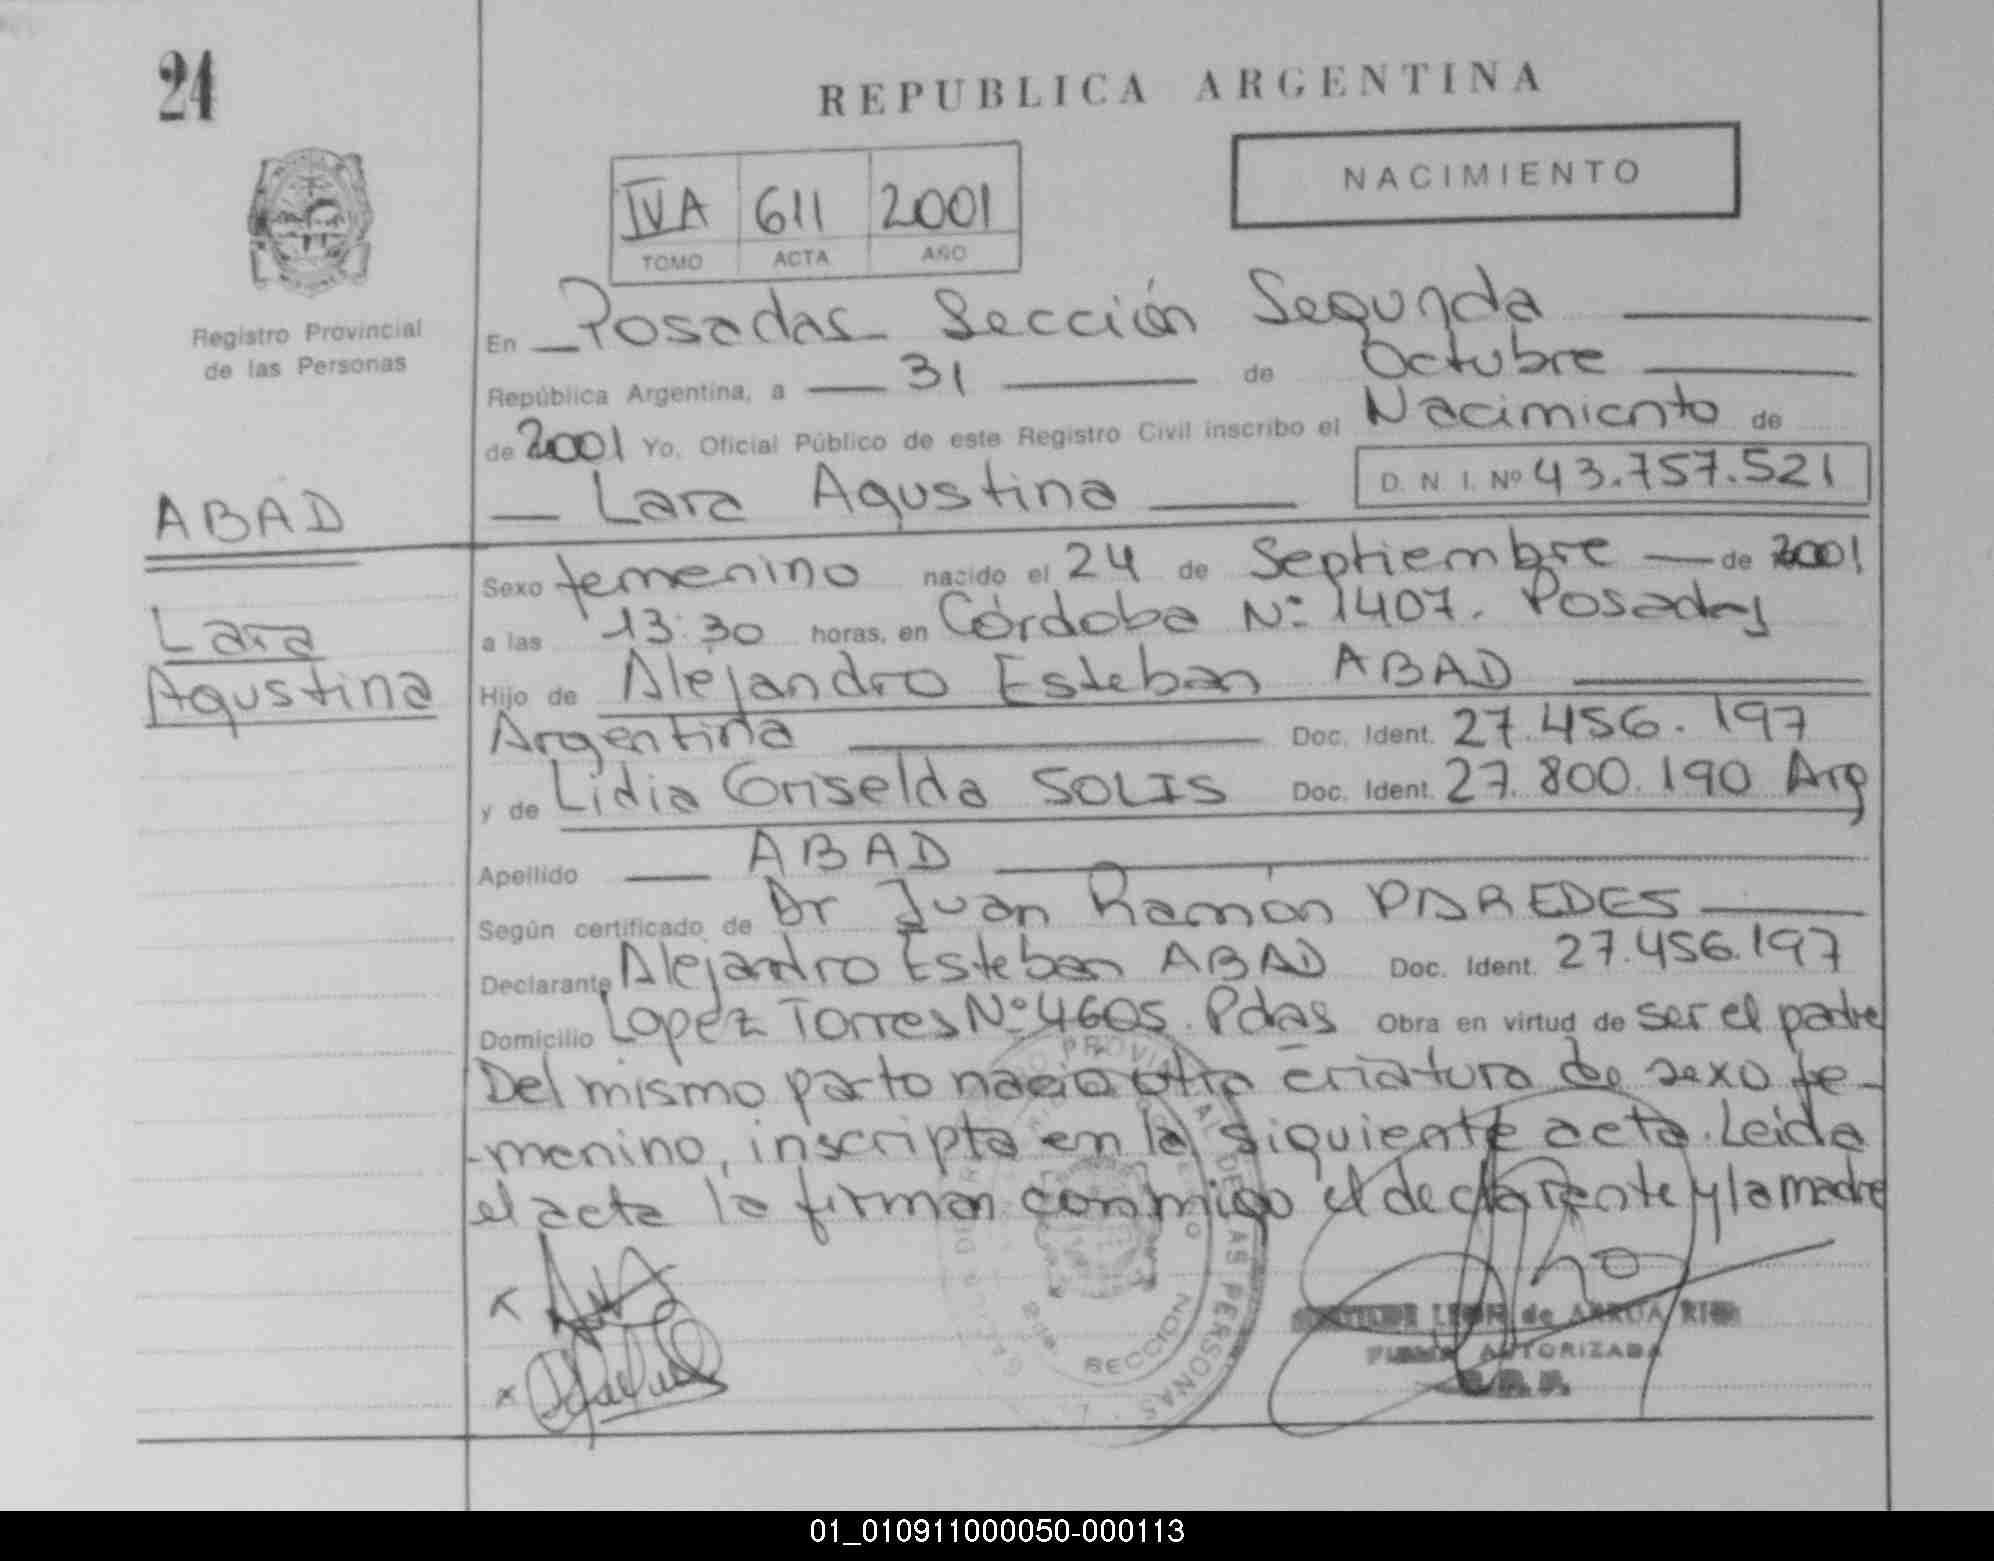 24
REPUBLICA ARGENTINA
NACIMIENTO
IVA 611 2001
TOMO ACTA AÑO
Registro Provincial
de las Personas
En Posadas Sección Segunda
República Argentina, a 31 de Octubre
de 2001 Yo, Oficial Público de este Registro Civil inscribo el Nacimiento de
Lara Agustina D. N. I. Nº 43.757.521
ABAD
Lara
Agustina
Sexo femenino nacido el 24 de Septiembre de 2001
a las 13:30 horas, en Córdoba Nº 1407. Posadas
Hijo de Alejandro Esteban ABAD
Argentina Doc. Ident. 27.456.197
y de Lidia Griselda SOLIS Doc. Ident. 27.800.190 Arg
Apellido ABAD
Según certificado de Dr Juan Ramón PAREDES
Declarante Alejandro Esteban ABAD Doc. Ident. 27.456.197
Domicilio Lopez Torres Nº 4605. Pdas Obra en virtud de ser el padre
Del mismo parto nacio otra criatura de sexo fe-
-menino, inscripta en la siguiente acta. Leida
el acta la firman conmigo el declarante y la madre
REGISTRO PROVINCIAL DE LAS PERSONAS
SECCION
LEON de ARRUA
FIRMA AUTORIZADA
01_010911000050-000113